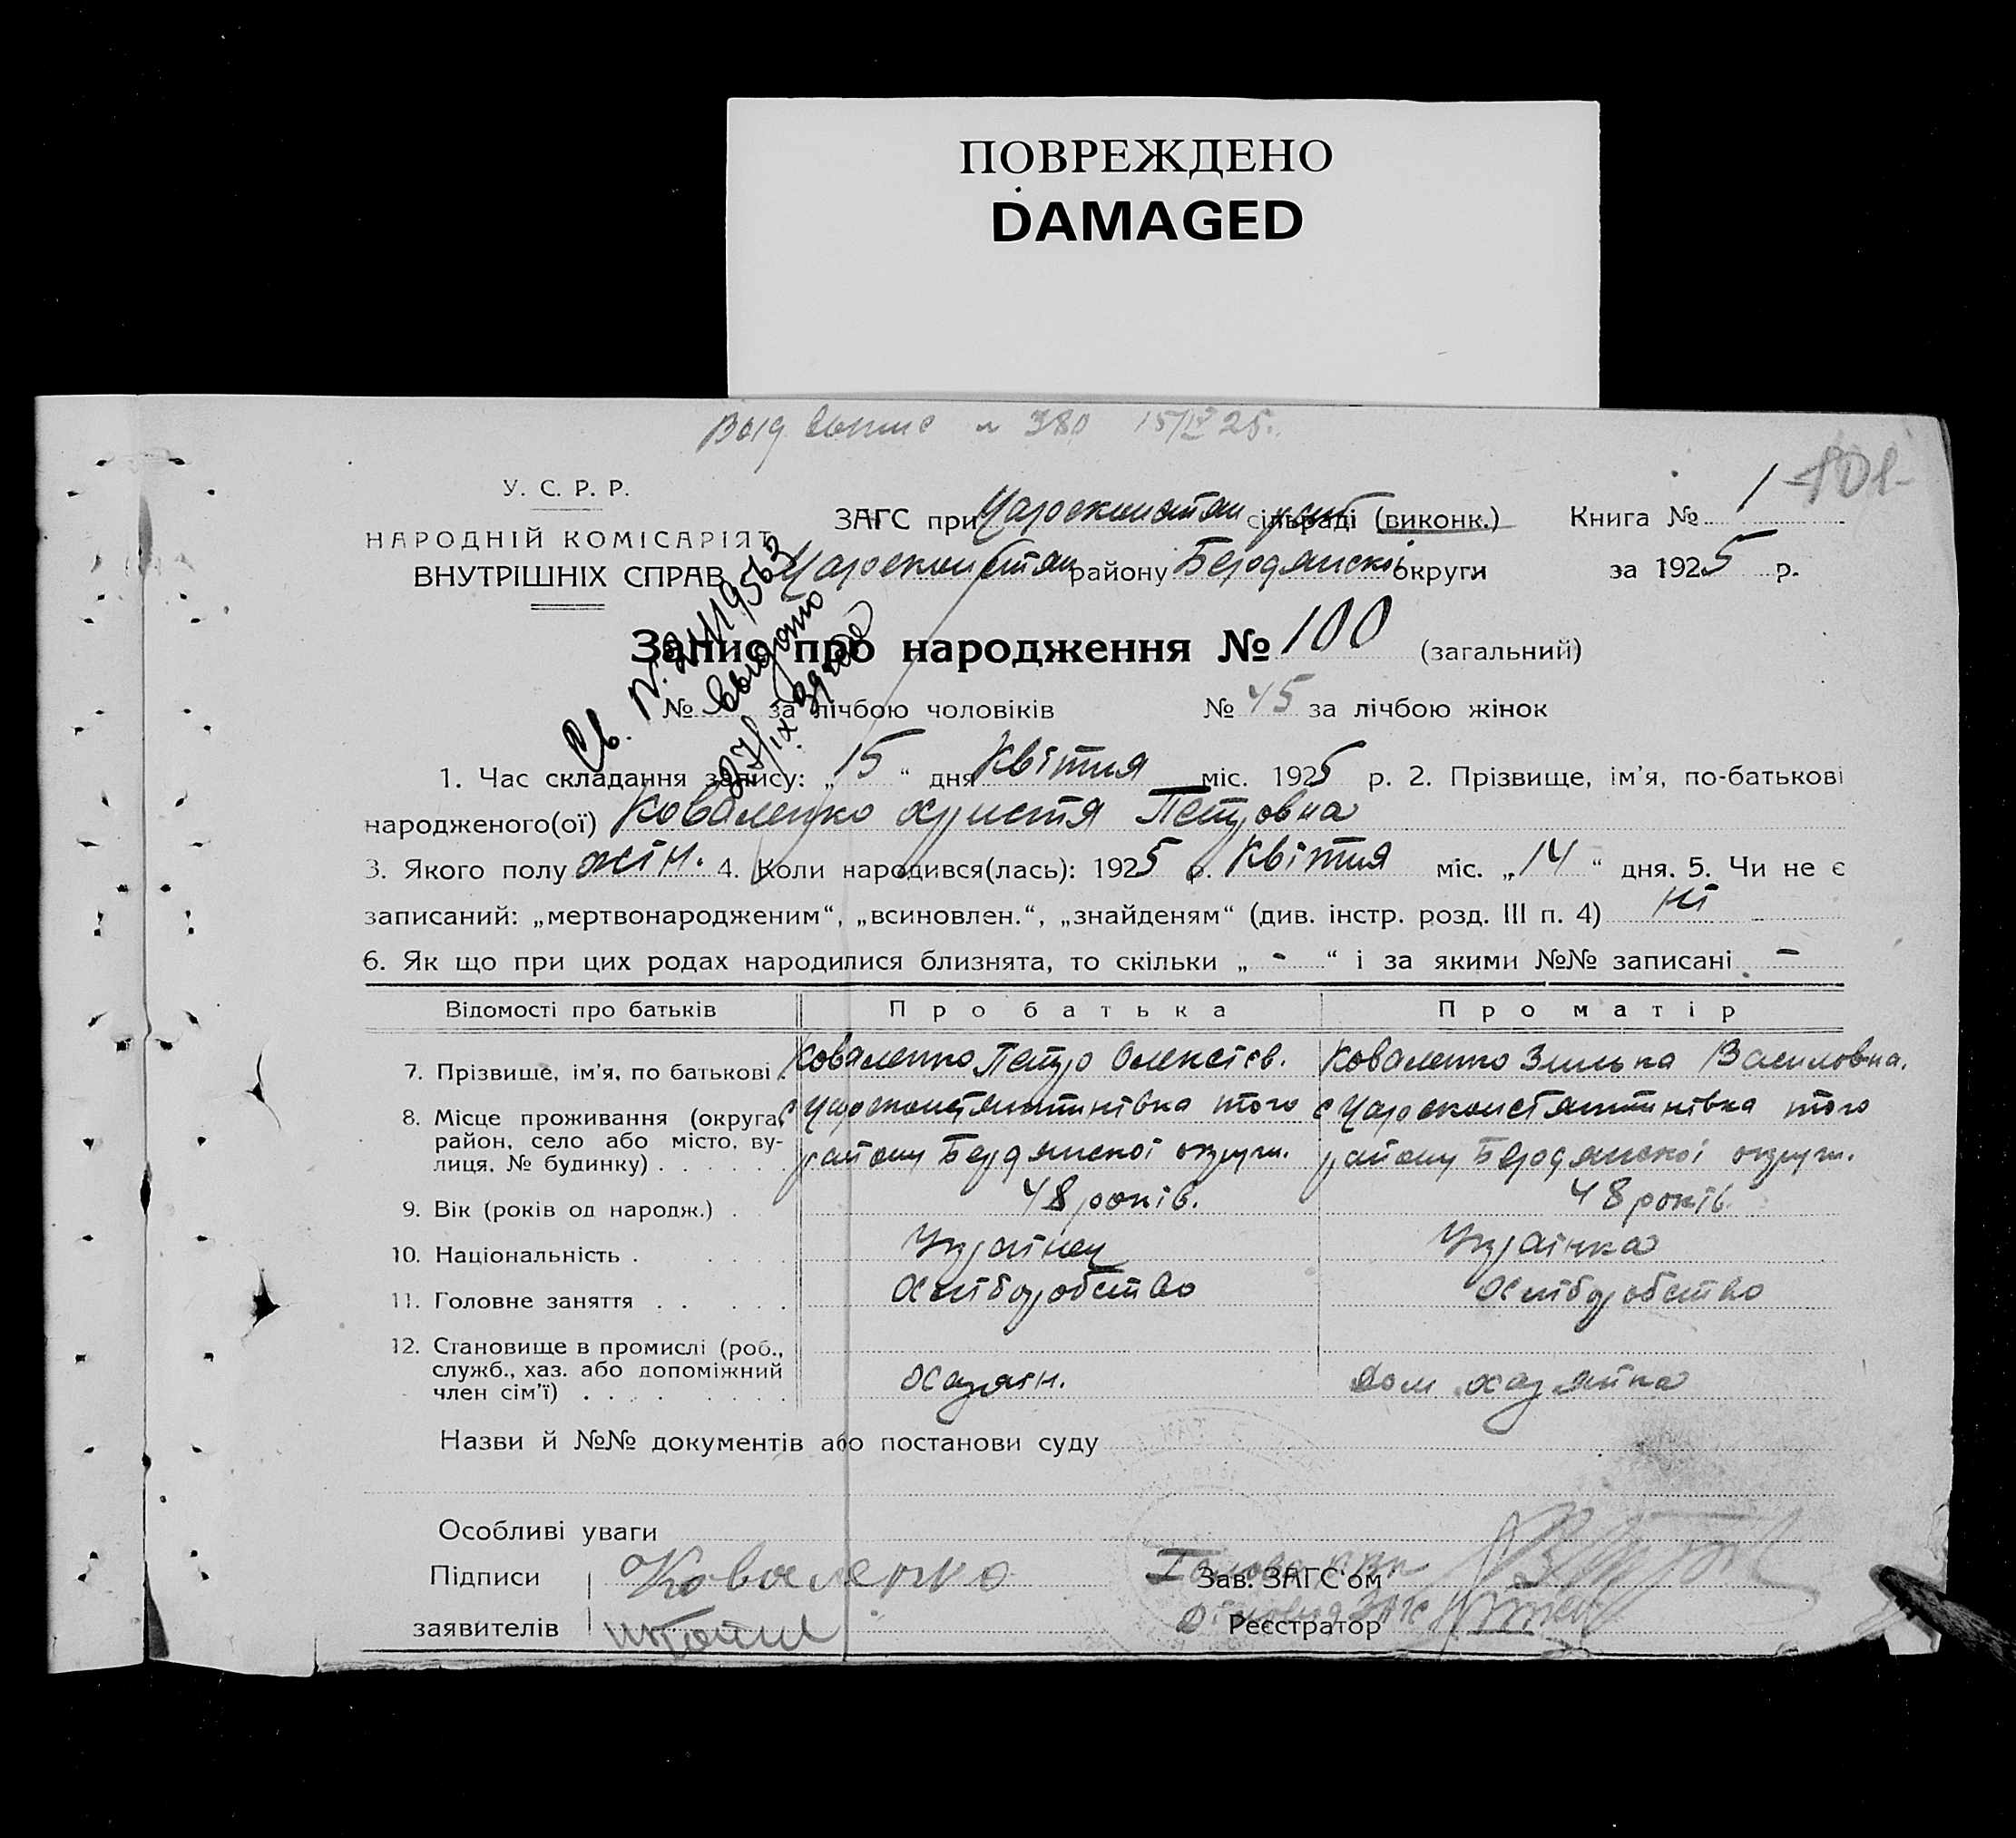 ПОВРЕЖДЕНО
DAMAGED
Выд. № 380 15/IV 25.
У. С. Р. Р.
НАРОДНІЙ КОМІСАРІЯТ
ВНУТРІШНІХ СПРАВ
ЗАГС при Царсконстан рай сільраді (виконк.) Книга № 1 101
Царсконстан району Бердянскої округи за 1925 р.
Запис про народження № 100 (загальний)
№ за лічбою чоловіків № 45 за лічбою жінок
Св. выдано
27/IX
1. Час складання запису: „15“ дня Квітня міс. 1925 р. 2. Прізвище, ім’я, по-батькові
народженого(ої) Коваленко Христя Петровна
3. Якого полу жін. 4. Коли народився(лась): 1925 р. Квітня міс. „14“ дня. 5. Чи не є
записаний: „мертвонародженим“, „всиновлен.“, „знайденям“ (див. інстр. розд. III п. 4) ні
6. Як що при цих родах народилися близнята, то скільки „ - “ і за якими №№ записані -
Відомості про батьків Про батька Про матір
7. Прізвище, ім’я, по батькові . Коваленко Петро Олексієв. Коваленко Зинька Василовна.
8. Місце проживання (округа, с Царсконстянтинівка того с Царсконстянтинівка того
район, село або місто, ву-
лиця, № будинку) . . . . . . району Бердянскої округи. району Бердянскої округи.
9. Вік (років од народж.) . 48 років. 48 років.
10. Національність . . . . . Украінец Украінка
11. Головне заняття . . . . . Хліборобство Хліборобство
12. Становище в промислі (роб.,
служб., хаз. або допоміжний
член сім’ї) . . . . . . . . Хазяін. дом хазяйка
Назви й №№ документів або постанови суду
Особливі уваги
Підписи Коваленко Голова Зав. ЗАГС’ом
заявителів Реєстратор